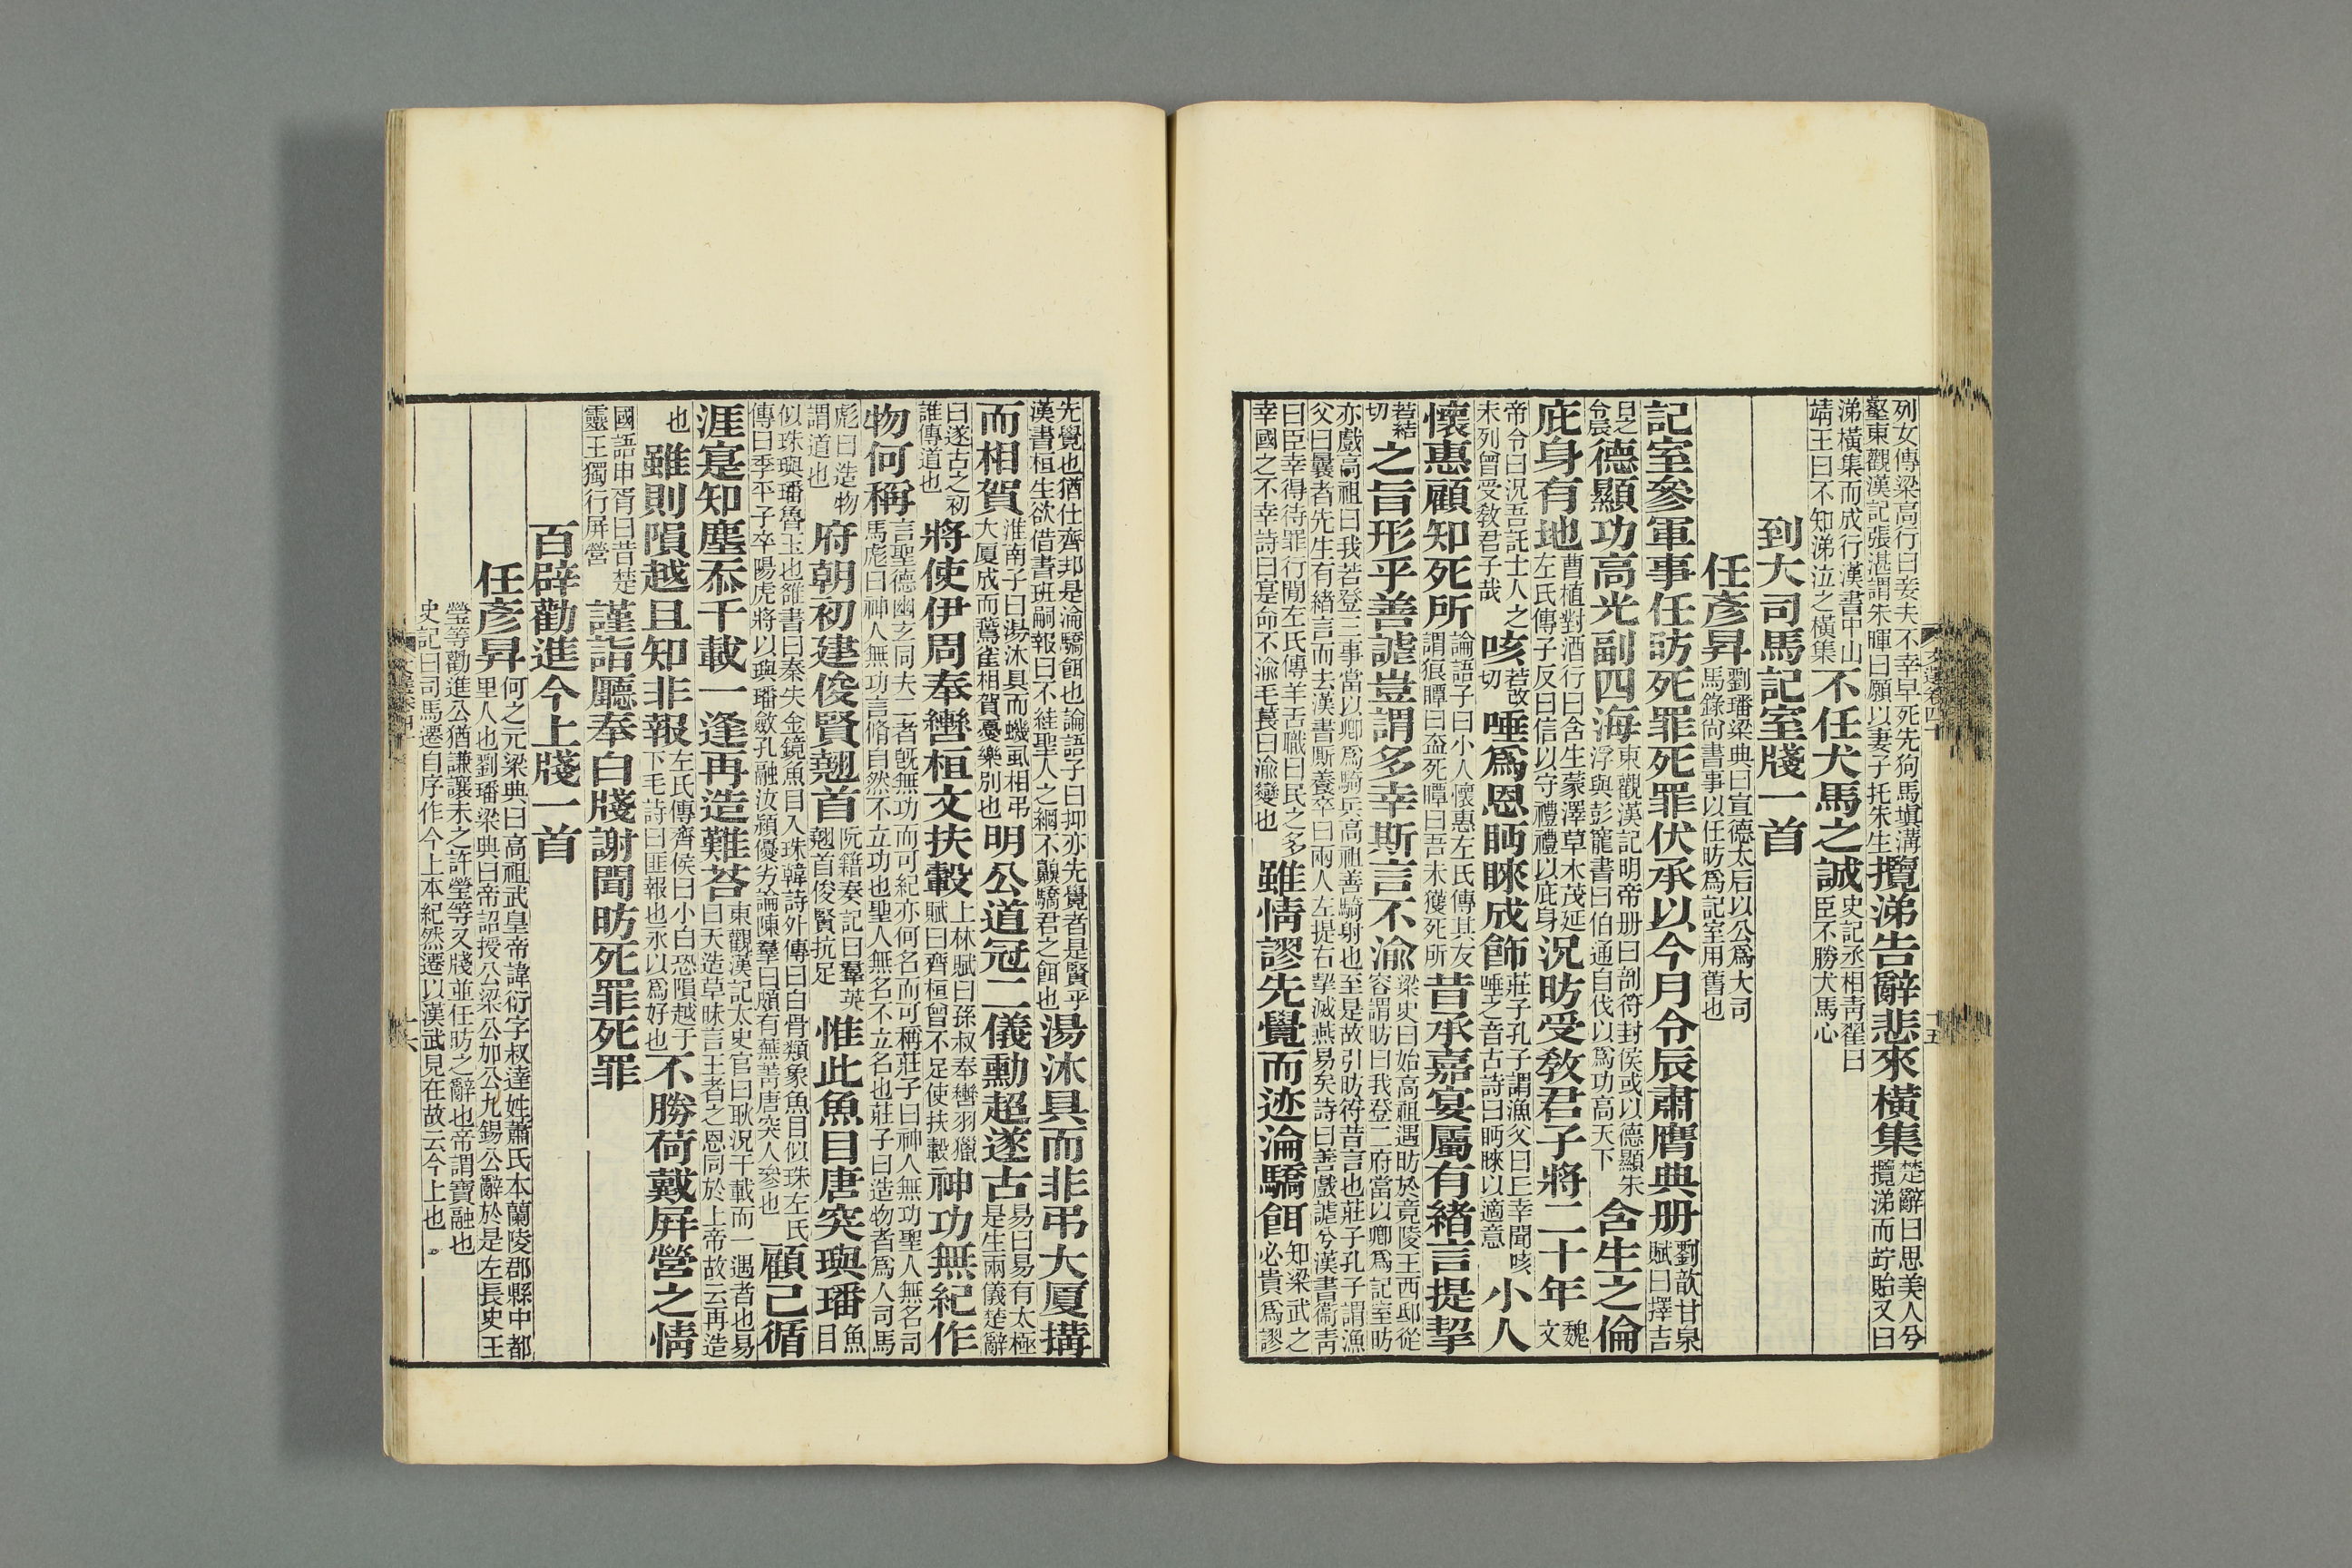 列女傳梁高行曰妾夫不幸早死先狗馬塡溝
壑東觀漢記張湛謂朱暉曰願以妻子托朱生
攬涕告辭悲來橫集
楚辭曰思美人兮
攬涕而竚貽又曰
涕橫集而成行漢書中山
靖王曰不知涕泣之橫集
不任犬馬之誠
史記丞相靑翟曰
臣不勝犬馬心
到大司馬記室牋一首
任彥昇
劉璠梁典曰宣德太后以公爲大司
馬錄尙書事以任昉爲記室用舊也
記室參軍事任昉死罪死罪伏承以今月令辰肅膺典册
劉歆甘泉
賦曰擇吉
日之
令辰
德顯功高光副四海
東觀漢記明帝册曰剖符封侯或以德顯朱
浮與彭寵書曰伯通自伐以爲功高天下
含生之倫
庇身有地
曹植對酒行曰含生蒙澤草木茂延
左氏傳子反曰信以守禮禮以庇身
況昉受敎君子將二十年
魏
文
帝令曰況吾託士人之
末列曾受敎君子哉
咳
若改
切
唾爲恩眄睞成飾
莊子孔子謂漁父曰丘幸聞咳
唾之音古詩曰眄睞以適意
小人
懷惠顧知死所
論語子曰小人懷惠左氏傳其友
謂狼瞫曰盍死瞫曰吾未獲死所
昔承嘉宴屬有緖言提挈
若結
切
之旨形乎善謔豈謂多幸斯言不渝
梁史曰始高祖遇昉於竟陵王西邸從
容謂昉曰我登三府當以卿爲記室昉
亦戲高祖曰我若登三事當以卿爲騎兵高祖善騎射也至是故引昉符昔言也莊子孔子謂漁
父曰曩者先生有緖言而去漢書厮養卒曰兩人左提右挈滅燕易矣詩曰善戲謔兮漢書衞靑
曰臣幸得待罪行閒左氏傳羊舌職曰民之多
幸國之不幸詩曰寔命不渝毛萇曰渝變也
雖情謬先覺而迹淪驕餌
知梁武之
必貴爲謬
先覺也猶仕齊邦是淪驕餌也論語子曰抑亦先覺者是賢乎
漢書桓生欲借書班嗣報曰不絓聖人之網不嗅驕君之餌也
湯沐具而非弔大厦搆
而相賀
淮南子曰湯沐具而蟣虱相弔
大厦成而鷰雀相賀憂樂別也
明公道冠二儀勳超遂古
易曰易有太極
是生兩儀楚辭
曰遂古之初
誰傳道也
將使伊周奉轡桓文扶轂
上林賦曰孫叔奉轡羽獵
賦曰齊桓曾不足使扶轂
神功無紀作
物何稱
言聖德幽玄同夫二者旣無功而可紀亦何名而可稱莊子曰神人無功聖人無名司
馬彪曰神人無功言脩自然不立功也聖人無名不立名也莊子曰造物者爲人司馬
彪曰造物
謂道也
府朝初建俊賢翹首
阮籍奏記曰羣英
翹首俊賢抗足
惟此魚目唐突璵璠
魚
目
似珠璵璠魯玉也雒書曰秦失金鏡魚目入珠韓詩外傳曰白骨類象魚目似珠左氏
傳曰季平子卒陽虎將以璵璠斂孔融汝潁優劣論陳羣曰頗有蕪菁唐突人參也
顧己循
涯寔知塵忝千載一逢再造難荅
東觀漢記太史官曰耿況千載而一遇者也易
曰天造草昧言王者之恩同於上帝故云再造
也
雖則隕越且知非報
左氏傳齊侯曰小白恐隕越于
下毛詩曰匪報也永以爲好也
不勝荷戴屛營之情
國語申胥曰昔楚
靈王獨行屛營
謹詣廳奉白牋謝聞昉死罪死罪
百辟勸進今上牋一首
任彥昇
何之元梁典曰高祖武皇帝諱衍字叔達姓蕭氏本蘭陵郡縣中都
里人也劉璠梁典曰帝詔授公梁公加公九錫公辭於是左長史王
瑩等勸進公猶謙讓未之許瑩等又牋並任昉之辭也帝謂寶融也
史記曰司馬遷自序作今上本紀然遷以漢武見在故云今上也